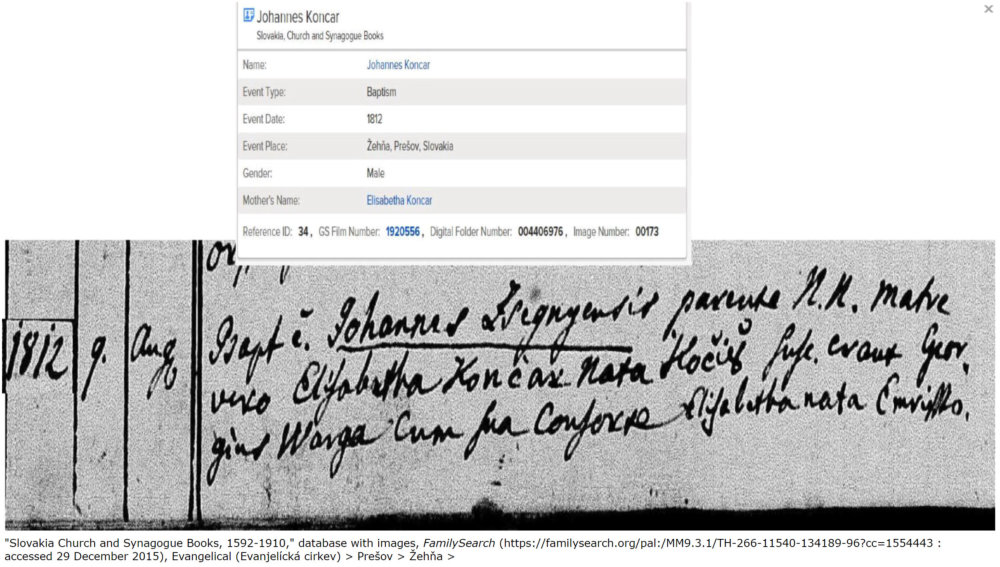 Johannes Koncar
Slovakia, Church and Synagogue Books
Name: Johannes Koncar
Event Type: Baptism
Event Date: 1812
Event Place: Žehňa, Prešov, Slovakia
Gender: Male
Mother's Name: Elisabetha Koncar
Reference ID: 34 , GS Film Number: 1920556 , Digital Folder Number: 004406976 , Image Number: 00173
1812 9. Aug
Bapt ẽ. Johannes Zsegnyensis parente N.N. Matre
vero Elisabetha Končar Nata Hočiš Susc. erant Geor,
gius Warga Cum sua Consorte Elisabetha nata
"Slovakia Church and Synagogue Books, 1592-1910," database with images, FamilySearch (https://familysearch.org/pal:/MM9.3.1/TH-266-11540-134189-96?cc=1554443 :
accessed 29 December 2015), Evangelical (Evanjelícká cirkev) > Prešov > Žehňa >